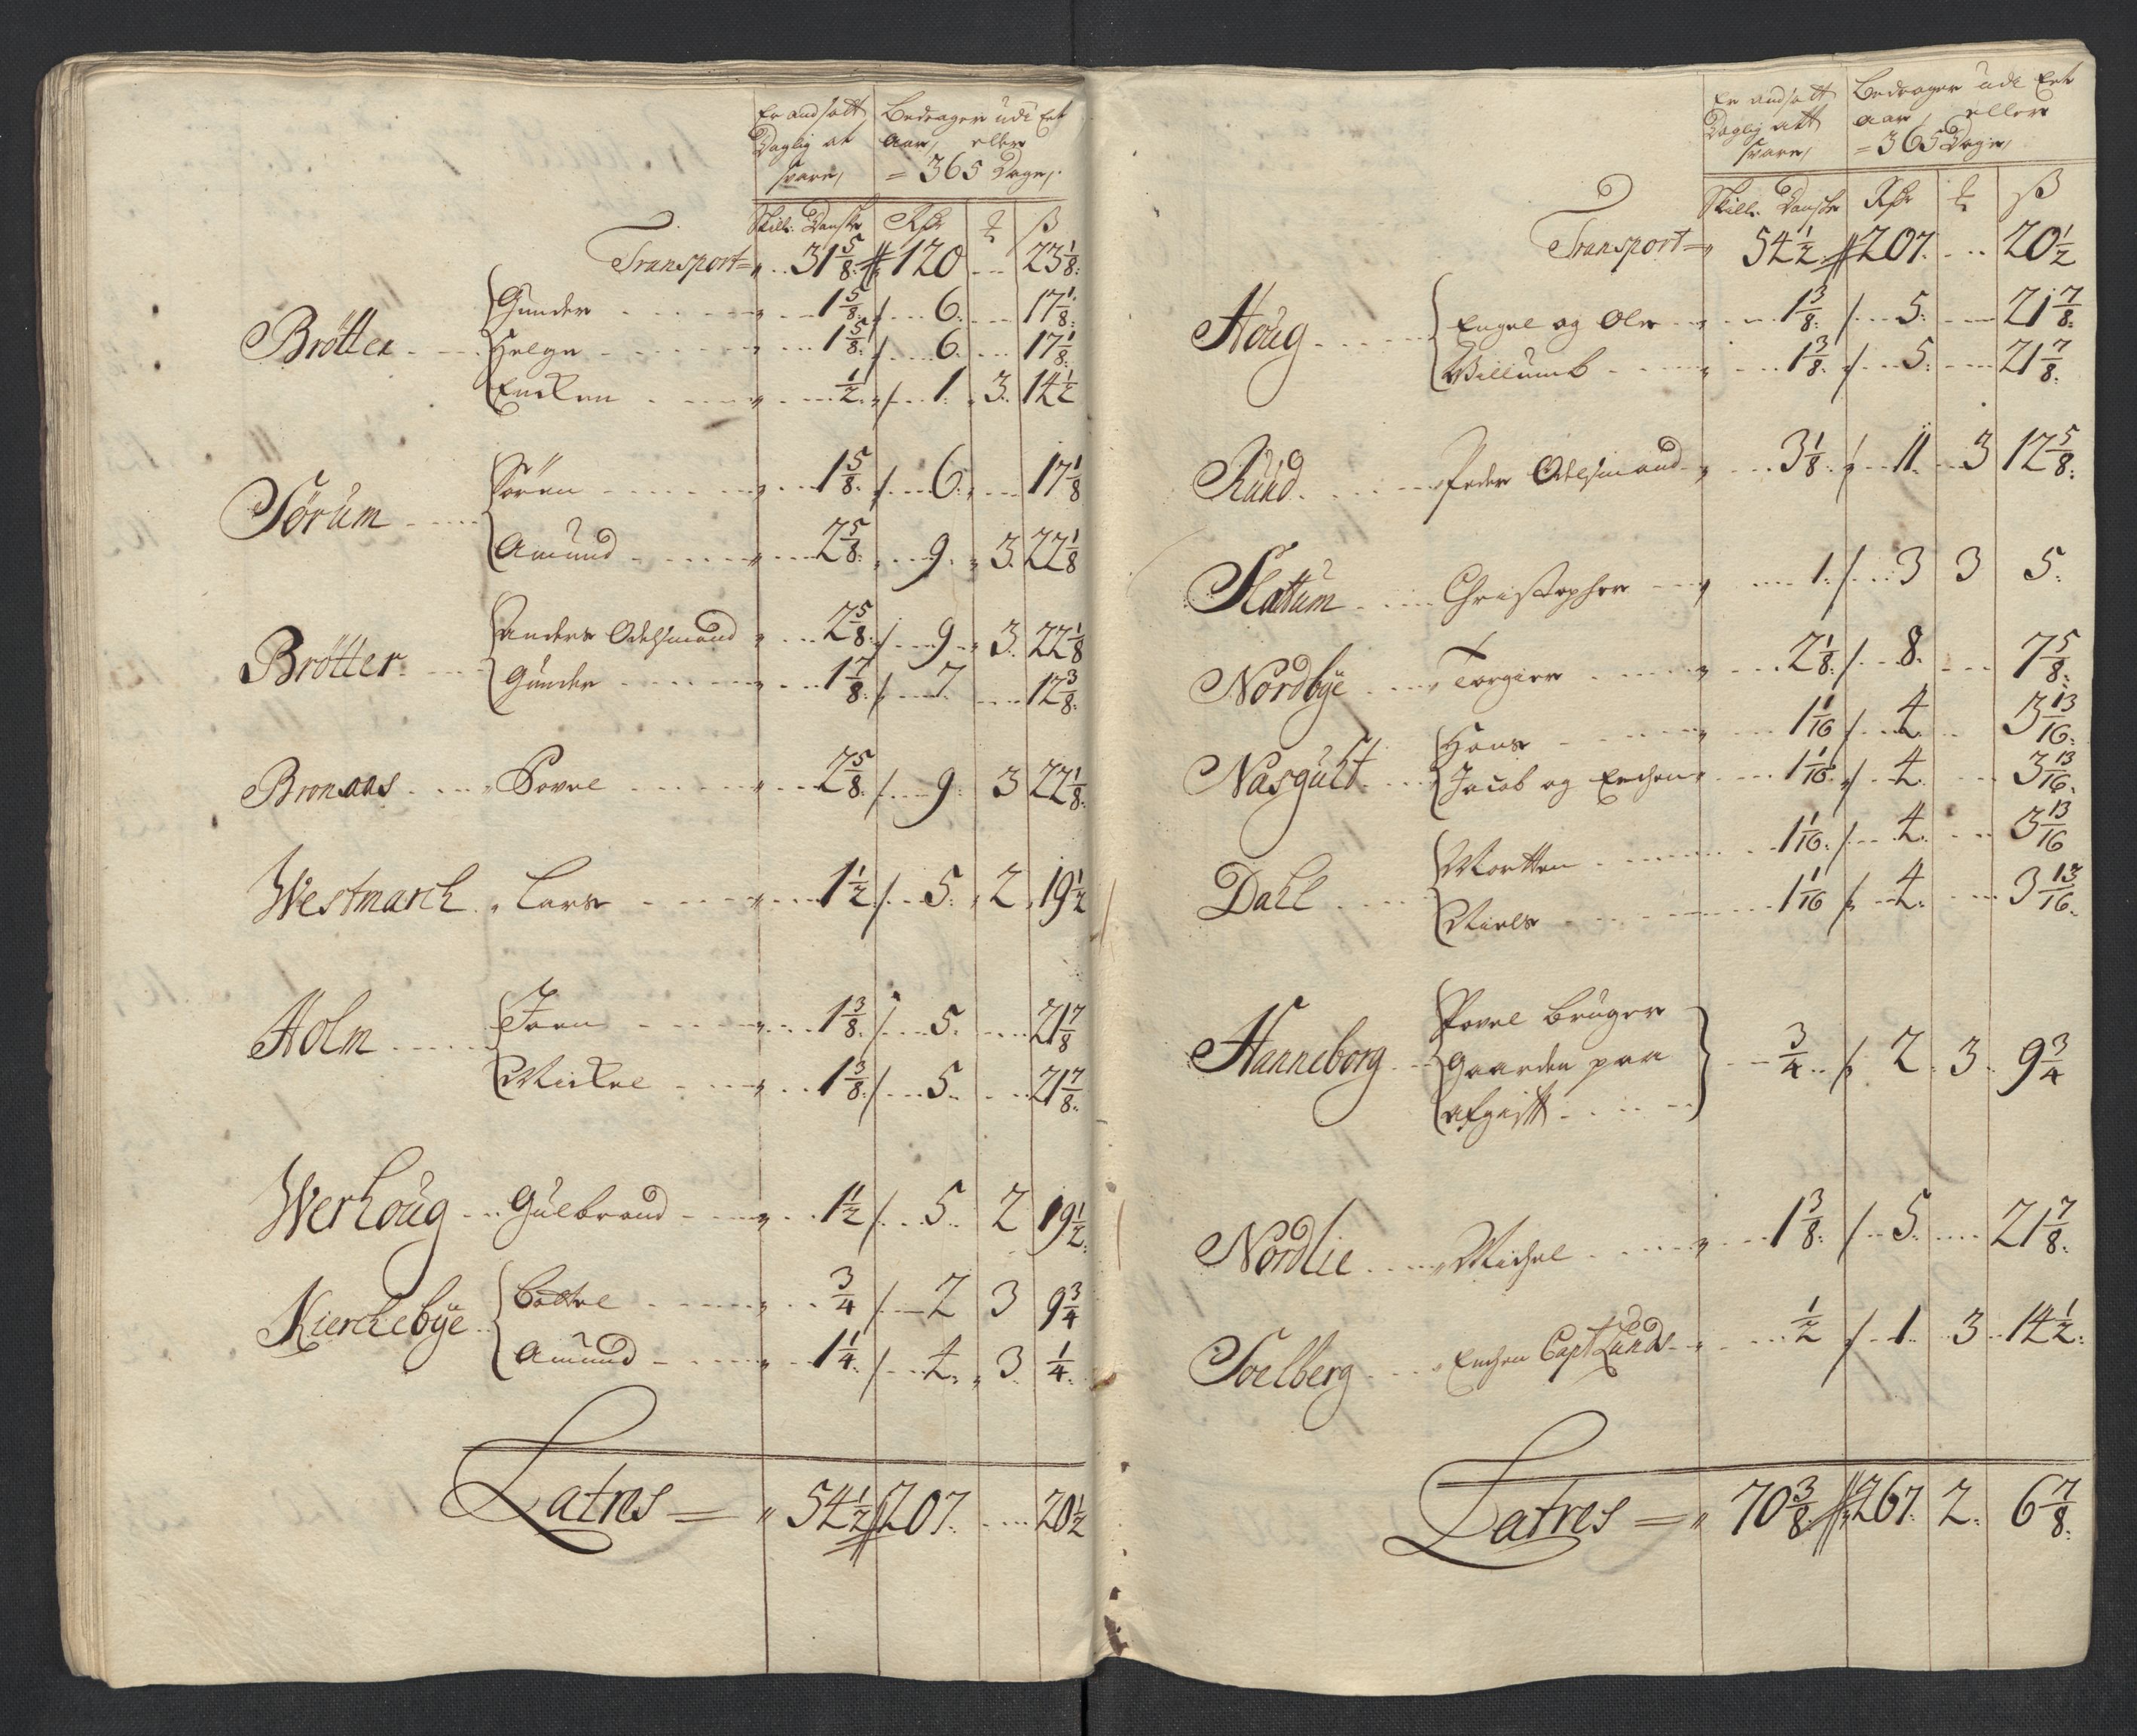 Er andsatt Daglig at svare,
Bedrager udi Eet aar, eller = 365 Dage,
Skill: Danske Rdr ß
Transport = 31 5/8 120 23 1/8
Brötter Gunder 1 5/8 6 17 1/8
Helge 1 5/8 6 17 1/8
Encken 1/2 1 3 14 1/2
Sörum Sören 1 5/8 6 17 1/8
Amund 2 5/8 9 3 22 1/8
Brötter Anders Odelsmand 2 5/8 9 3 22 1/8
Gunder 1 7/8 7 12 3/8
Bronaas Povel 2 5/8 9 3 22 1/8
Westmarch Lars 1 1/2 5 2 19 1/2
Holm Joen 1 3/8 5 21 7/8
Mickel 1 3/8 5 21 7/8
Werhoug Gulbrand 1 1/2 5 2 19 1/2
Kierchebye Bottel 3/4 2 3 9 3/4
Amund 1 1/4 4 3 1/4
Latres = 54 1/2 207 20 1/2
Er andsatt Daglig att svare,
Bedrager udi Eet aar, eller = 365 Dage,
Skill: Danske Rdr ß
Transport = 54 1/2 207 20 1/2
Houg Engel og Ole 1 3/8 5 21 7/8
Willumb 1 3/8 5 21 7/8
Ruud Peder Odelsmand 3 1/8 11 3 12 5/8
Slattum Christopher 1 3 3 5
Nordbye Torgier 2 1/8 8 7 5/8
Nasgult Hans 1 1/16 4 3 13/16
Jacob og Enchen 1 1/16 4 3 13/16
Dahl Mortten 1 1/16 4 3 13/16
Niels 1 1/16 4 3 13/16
Hanneborg Povel bruger
Gaarden paa 3/4 2 3 9 3/4
afgift
Nordlie Michel 1 3/8 5 21 7/8
Soelberg Enchen Capt Lunds 1/2 1 3 14 1/2
Latres = 70 3/8 267 2 6 7/8